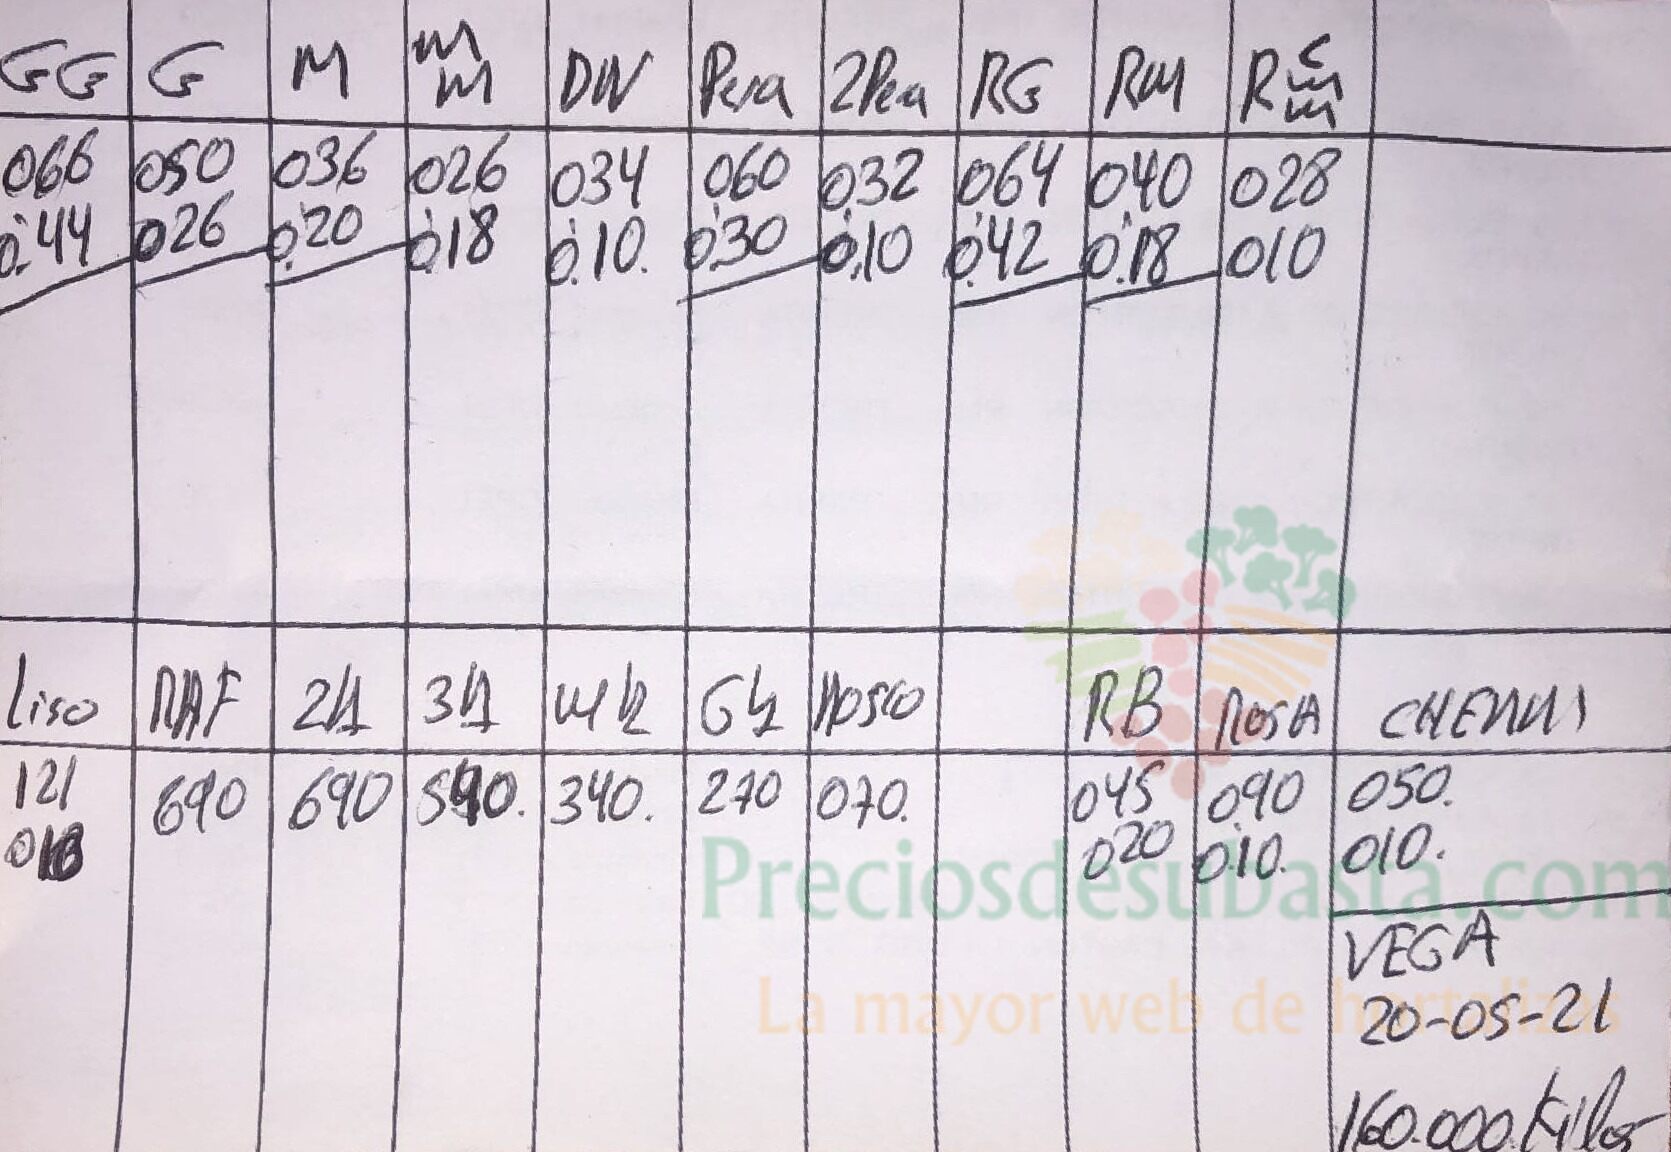 GG G M mm DW Pera 2Pera RG RM R mm
066 050 036 026 034 060 032 064 040 028
0.44 026 0.20 0.18 0.10. 0.30 0.10 0.42 0.18 010
Liso RAF 21 31 G4 Hosco RB ROSA CHERRI
121 690 690 590. 340. 270 070. 045 090 050.
020 0.10. 010.
Preciosdesubasta.com
VEGA
La mayor web de hortalizas
20-05-21
160.000 Killos